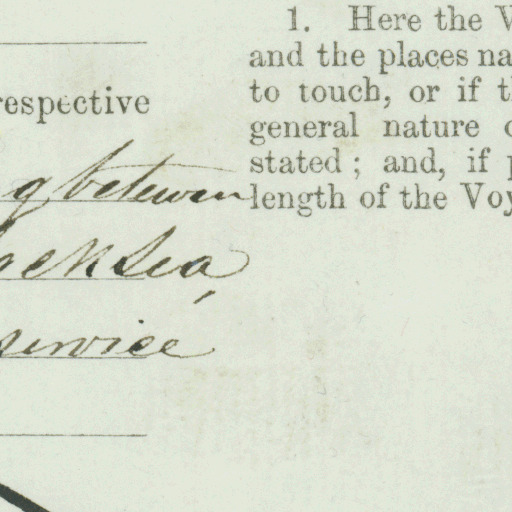 respective
g between
ck Sea,
service
1. Here the
and the places na
to touch, or if
general nature
stated; and, if
length of the Voy